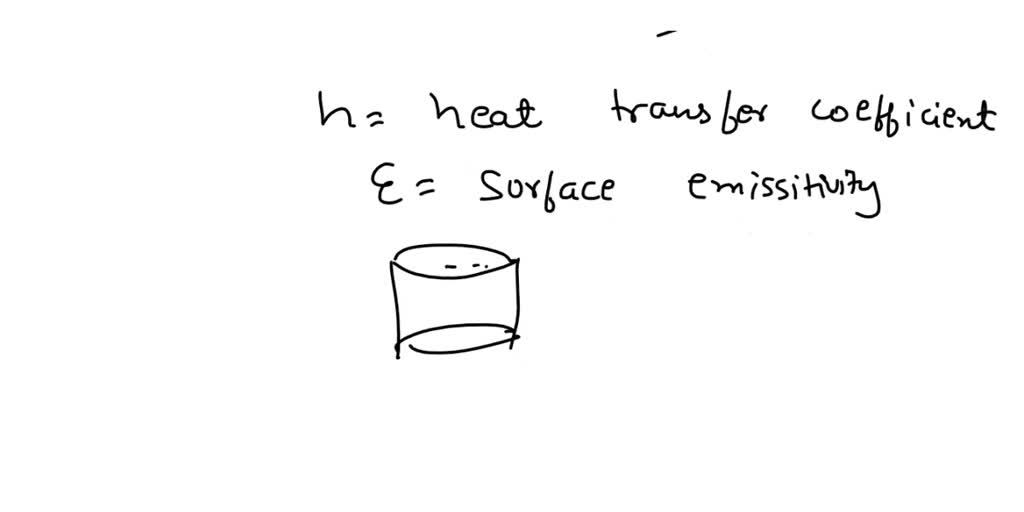 h= heat transfer coefficient
ε= Surface emissitivity